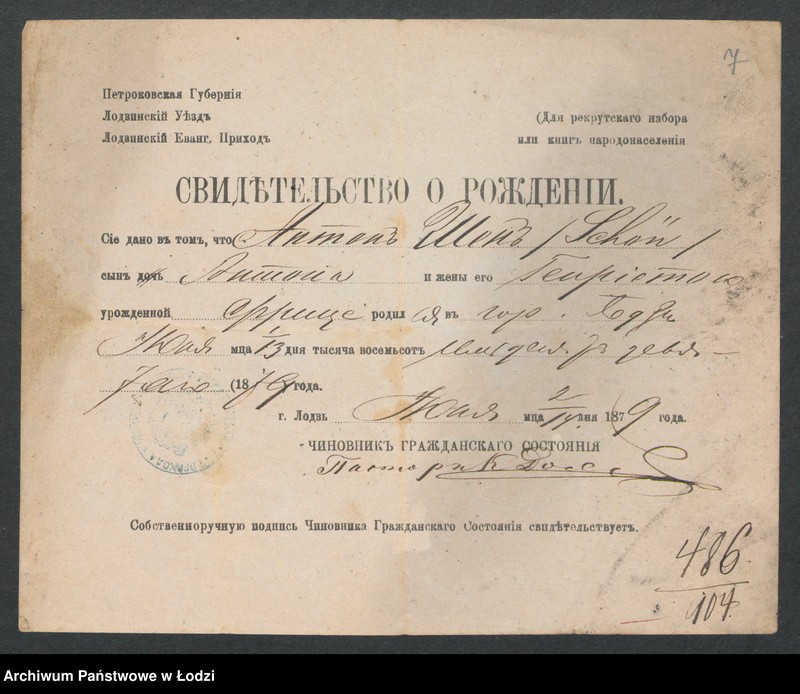 7
Петроковская Губернія
Лодзинскій Уѣздъ
Лодзинскій Еванг. Приходъ
(Для рекрутскаго набора
или книгъ народонаселенія
СВИДѢТЕЛЬСТВО О РОЖДЕНІИ.
Сіе дано въ томъ, что Антонъ Шенъ /Schön/
сынъ дочь Антона и жены его
урожденной Фрице родился въ гор. Лодзи
Июля мца 1/13 дня тысяча восемьсотъ семьдесятъ девя-
таго (1879 года.
г. Лодзь Июля мца 2/14 дня 1879 года.
ЧИНОВНИКЪ ГРАЖДАНСКАГО СОСТОЯНІЯ
Пасторъ
Собственноручную подпись Чиновника Гражданскаго Состоянія свидѣтельствуетъ.
486
104
Archiwum Państwowe w Łodzi